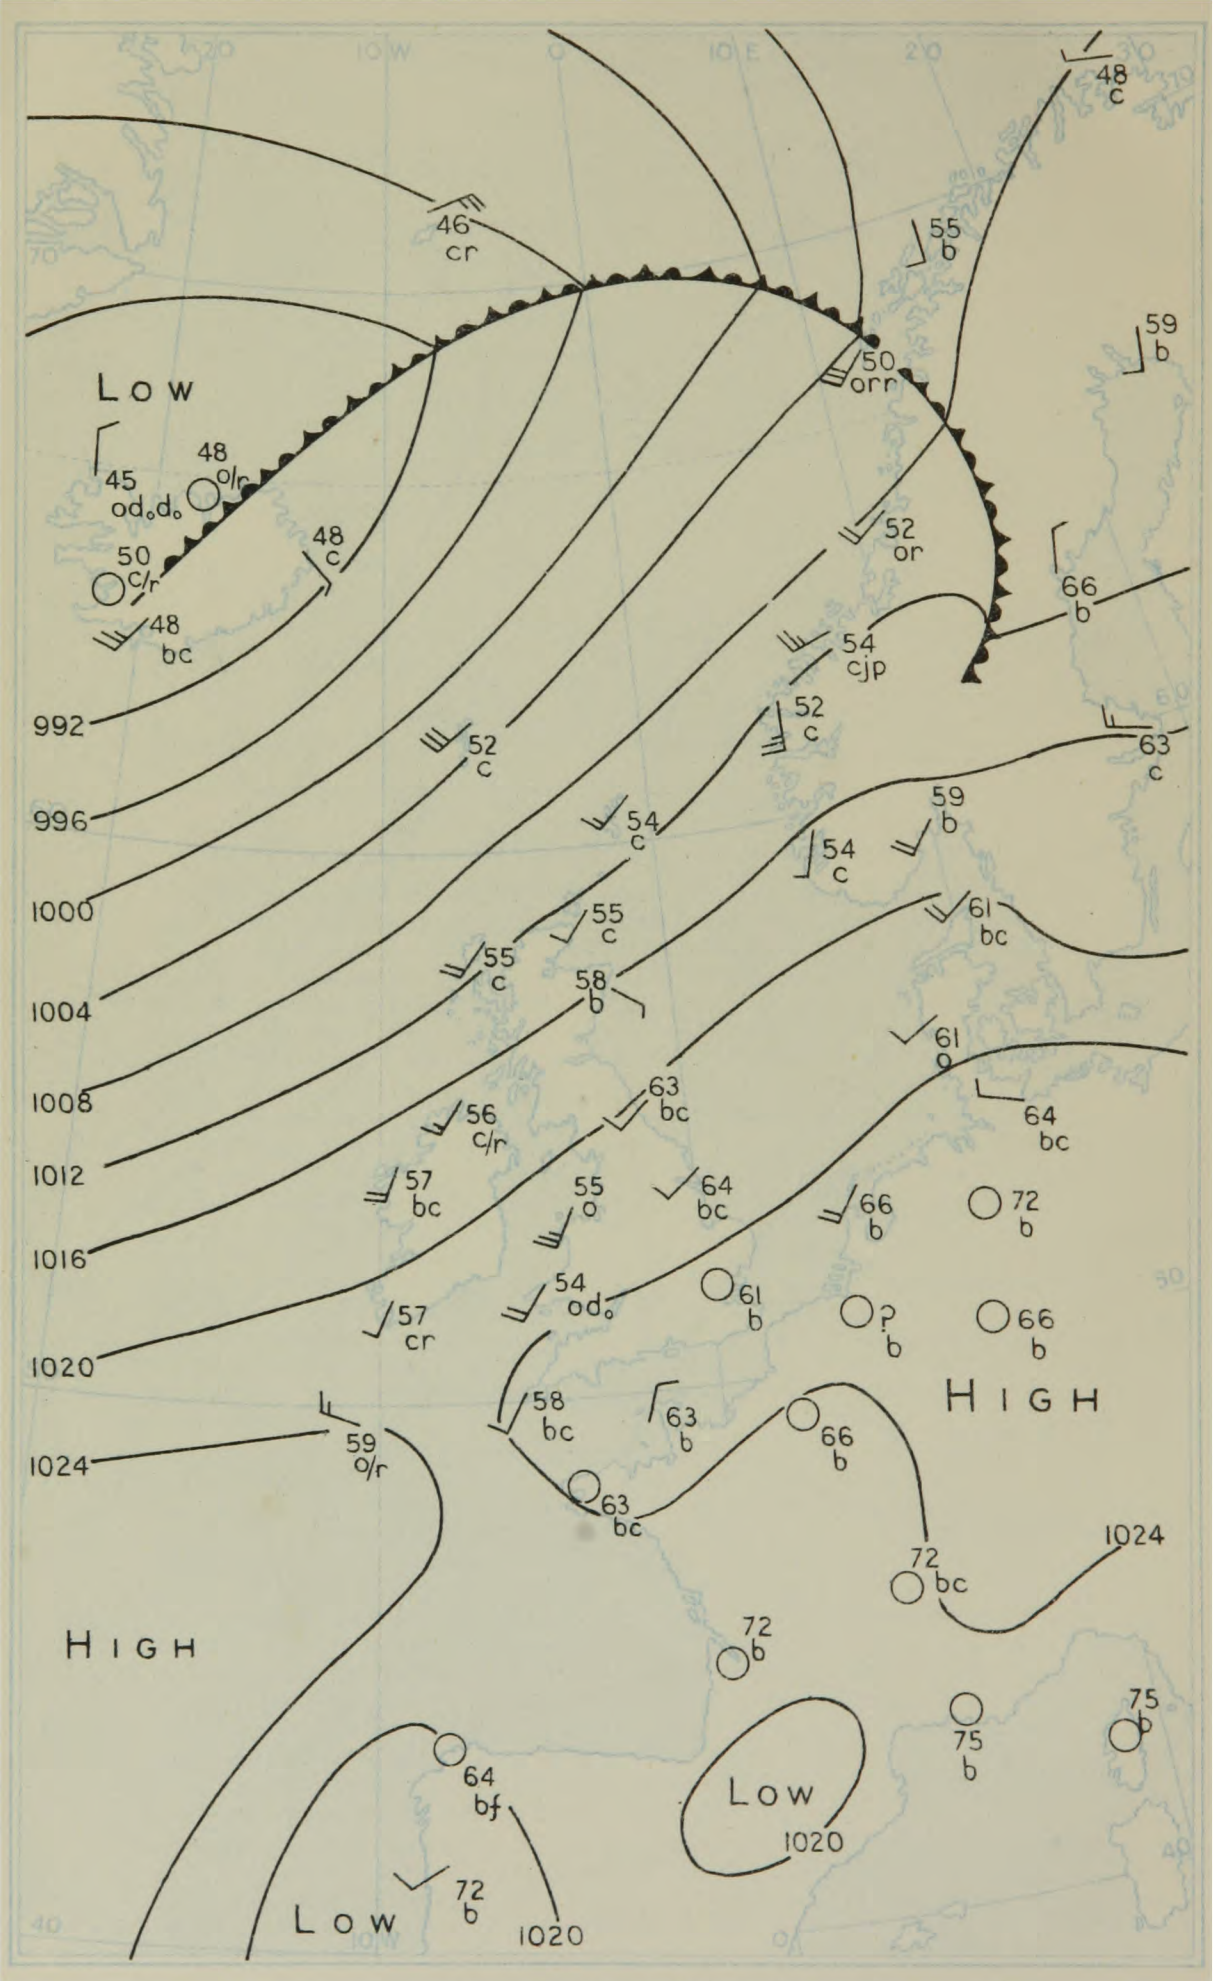 20
10 W
0
10 E
20
30
70
48
c
46
cr
55
b
70
59
b
50
orr
LOW
48
o/r
45
od₀d₀
48
c
50
c/r
52
or
66
b
48
bc
54
cjp
60
992
52
c
52
c
63
c
996
54
c
59
b
54
c
1000
55
c
61
bc
55
c
58
b
1004
61
o
1008
63
bc
64
bc
56
c/r
1012
57
bc
55
o
64
bc
66
b
72
b
1016
54
od₀
61
b
?
b
66
b
50
57
cr
1020
HIGH
58
bc
63
b
66
b
59
o/r
1024
63
bc
1024
72
bc
HIGH
72
b
75
b
75
b
64
bf
LOW
1020
72
b
LOW
1020
40
10 W
0